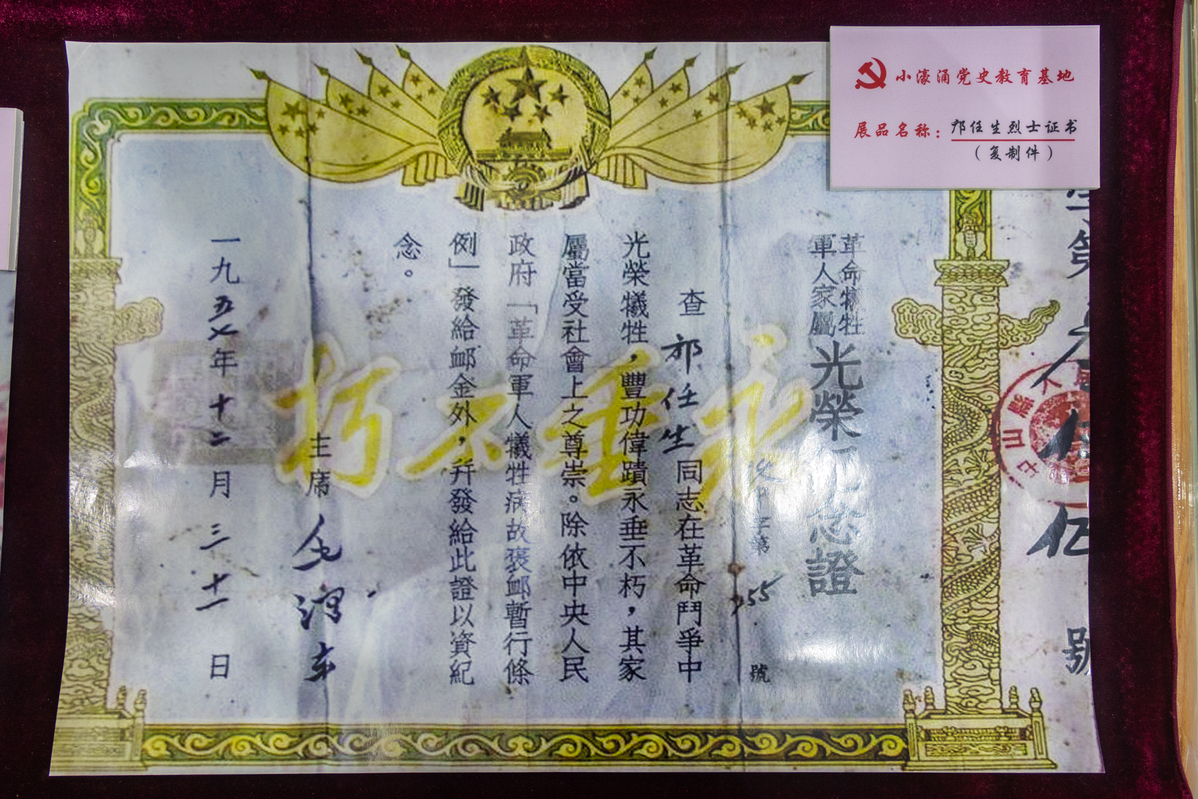 小濠涌党史教育基地
展品名称：邝任生烈士证书
（复制件）
革命犧牲
軍人家屬
光榮紀念證
字第
號
查邝任生同志在革命鬥爭中
光榮犧牲，豐功偉蹟永垂不朽，其家
屬當受社會上之尊崇。除依中央人民
政府「革命軍人犧牲病故褒卹暫行條
例」發給卹金外，幷發給此證以資紀
念。
主席 毛澤东
一九五七年十二月三十一日
永垂不朽
第
號